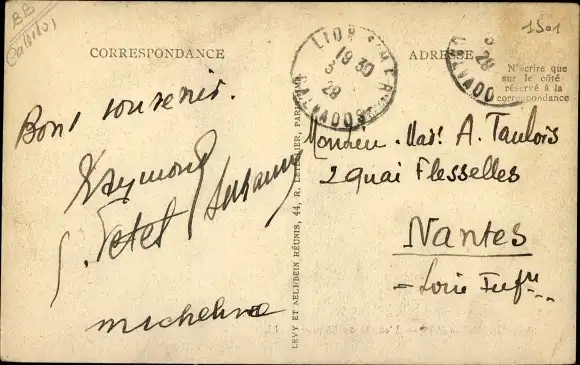 BB
1501
CORRESPONDANCE
ADRESSE
N'écrire que
sur le côté
réservé à la
correspondance
LION S/MER
19 30
3
28
CALVADOS
3
28
CALVADO
Bons souvenirs.
Raymond
Suzanne
Micheline
LEVY ET NEURDEIN RÉUNIS, 44, R. LETELLIER, PARIS
Monsieur. Mad. A. Taulois
2 quai Flesselles
Nantes
Loire Infre